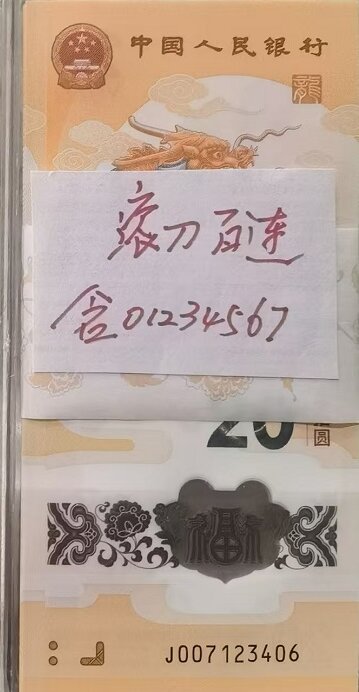 中国人民银行
龍
刀百连
含01234567
20
圆
福
J007123406